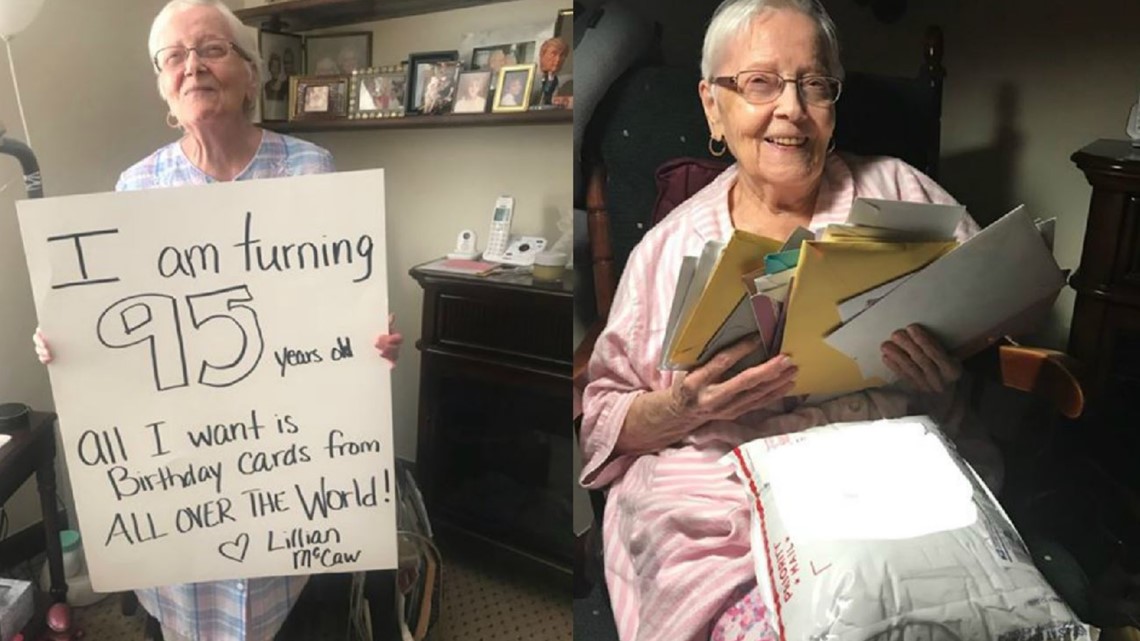 I am turning
95 years old
all I want is
Birthday cards from
ALL OVER THE World!
♡ Lillian
McCaw
PRIORITY
★ MAIL ★